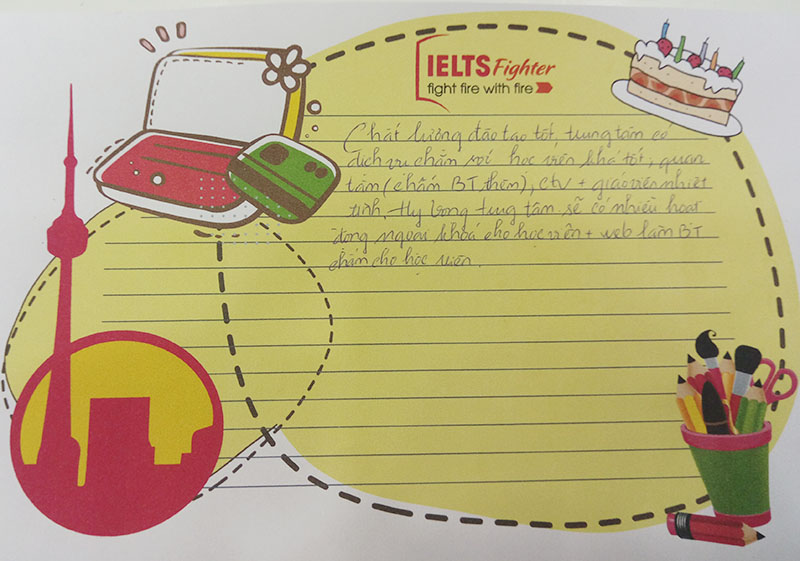 IELTS Fighter
fight fire with fire
Chất lượng đào tạo tốt, trung tâm có
dịch vụ chăm sóc học viên khá tốt, quan
tâm (chấm BT thêm), ctv + giáo viên nhiệt
tình. Hy vọng trung tâm sẽ có nhiều hoạt
động ngoại khoá cho học viên + web làm BT
chấm cho học viên.